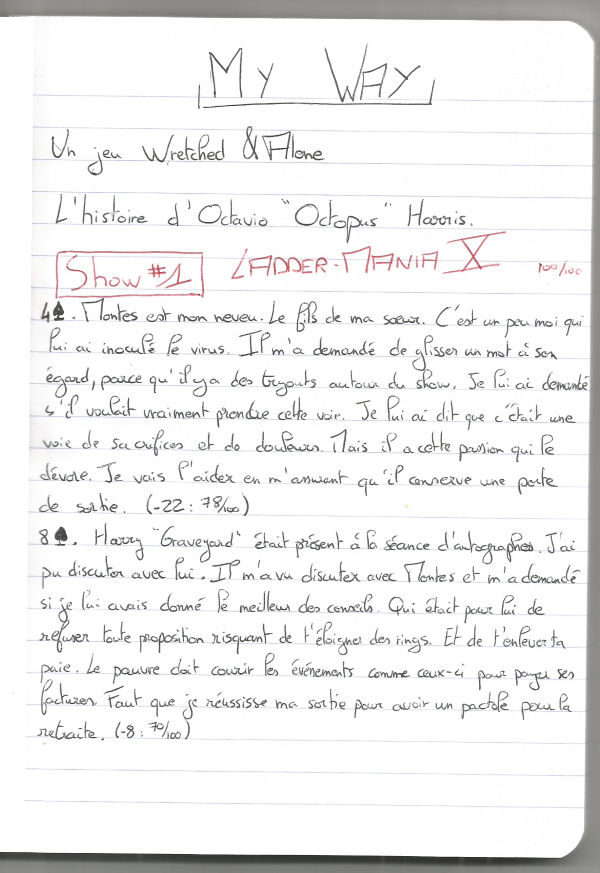 My Way
Un jeu Wretched & Alone
L'histoire d'Octavio "Octopus" Harris.
Show #1 LADDER-MANIA X 100/100
4♠. Montes est mon neveu. Le fils de ma sœur. C'est un peu moi qui
lui ai inoculé le virus. Il m'a demandé de glisser un mot à son
égard, parce qu'il y a des tryouts autour du show. Je lui ai demandé
s'il voulait vraiment prendre cette voie. Je lui ai dit que c'était une
voie de sacrifices et de douleurs. Mais il a cette passion qui le
dévore. Je vais l'aider en m'assurant qu'il conserve une porte
de sortie. (-22 : 78/100)
8♠. Harry "Graveyard" était présent à la séance d'autographes. J'ai
pu discuter avec lui. Il m'a vu discuter avec Montes et m'a demandé
si je lui avais donné le meilleur des conseils. Qui était pour lui de
refuser toute proposition risquant de t'éloigner des rings. Et de t'enlever ta
paie. Le pauvre doit courir les événements comme ceux-ci pour payer ses
factures. Faut que je réussisse ma sortie pour avoir un pactole pour la
retraite. (-8 : 70/100)